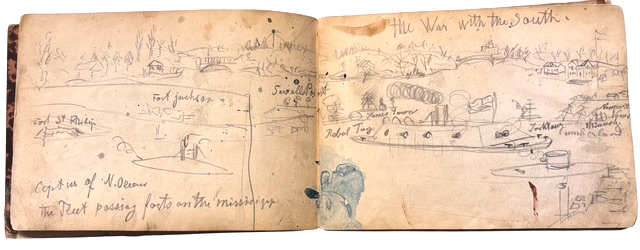 Fort Jackson
Fort St Philip
Capture of N. Orleans
the Fleet passing forts on the mississipp
the War with the South.
Sewalls Point
James Town
Rebel Tug
Yorktown
Cumberland
Newport
News